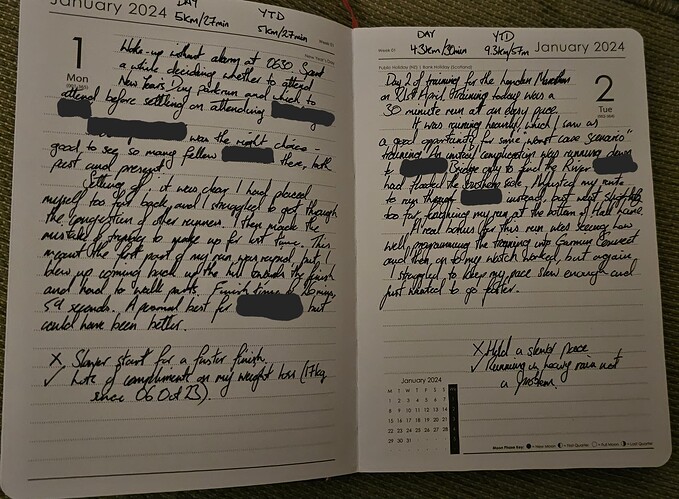 January 2024
DAY
5km/27min
YTD
5km/27min
1
Mon
Wake-up without alarm at 0630. Spent
a while deciding whether to attend
New Years Day parkrun and which to
attend before settling on attending
was the right choice -
good to see so many fellow there, both
past and present.
Setting off it were clear I had placed
myself too far back and I struggled to get through
the congestion of other runners. I then made the
mistake of trying to make up for lost time. This
meant the first part of my run was rapid, but, I
blew up coming back up the hill towards the finish
and had to walk parts. Finish time of 26 mins,
59 seconds. A personal best for but
could have been better.
X Slower start for a faster finish.
✓ Lots of compliments on my weight loss (17kg
since 06 Oct 23).
Week 01
DAY
4.3km/30min
YTD
9.3km/57m
January 2024
Public Holiday (NZ) | Bank Holiday (Scotland)
2
Tue
Day 2 of training for the London Marathon
on 21st April. Training today was a
30 minute run at an easy pace.
It was raining heavily, which I saw as
a good opportunity for some "worst case scenario"
training. An initial complication was running down
to Bridge only to find the River
had flooded the side. Adjusted my route
to run through instead, but went slightly
too far finishing my run at the bottom of Hall Lane.
A real bonus for this run was seeing how
well programming the training into Garmin Connect
and then on to my watch worked, but again
I struggled to keep my pace slow enough and
just wanted to go faster.
X Hold a slower pace
✓ Running in heavy rain not
a problem.
January 2024
M T W T F S S
1 2 3 4 5 6 7
8 9 10 11 12 13 14
15 16 17 18 19 20 21
22 23 24 25 26 27 28
29 30 31
Moon Phase Key: New Moon First Quarter Full Moon Last Quarter